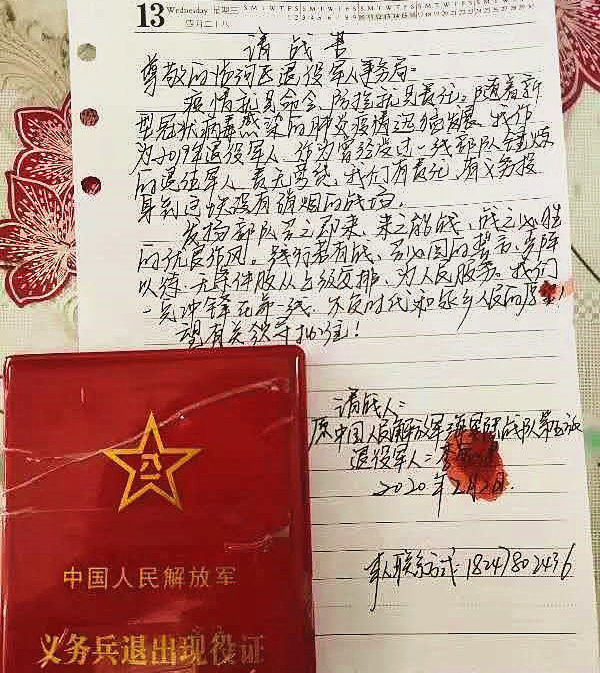 13 Wednesday 星期三
四月二十八
S M T W T F S S M T W T F S S M T W T F S S M T W T F S S M T W T F S
请战书
尊敬的 退役军人事务局:
疫情就是命令,防控就是责任。随着新
型冠状病毒感染的肺炎疫情迅猛发展,我作
为2019年退役军人,作为曾经
的退役军人,责无旁贷,我们有责任,有义务投
身到这块没有硝烟的战场。
发扬部队召之即来,来之能战,战之必胜
的优良作风。 若有战,召必回的誓言,
以待,无条件服从上级安排,为人民服务。我们
一定冲锋在第一线,不负时代和家乡人民的
望有关领导批准!
请战人:
原中国人民解放军海军陆战队第五旅
退役军人:李
2020年2月2日.
本人联系方式:18247802436
中国人民解放军
义务兵退出现役证